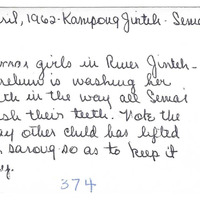 ril, 1962-Kampong Jinteh - Semai
girls in River Jinteh-
is washing her
th in the way all Semai
sh their teeth. Note the
ay other child has lifted
sarong so as to keep it
y.
374